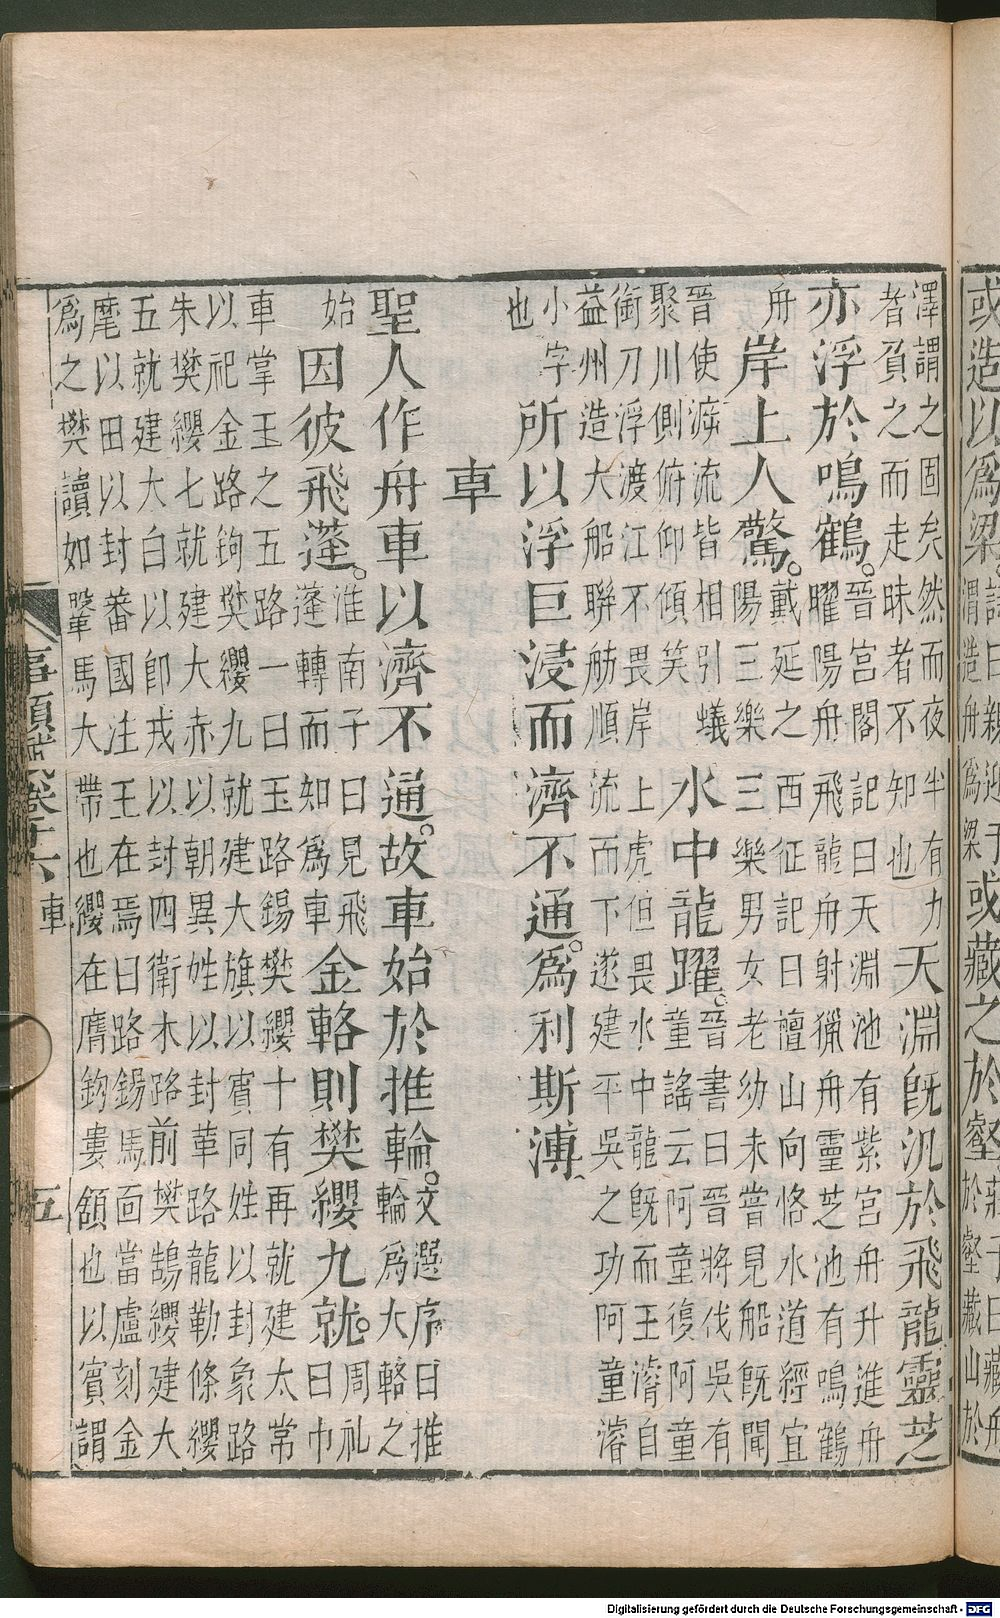 或造以爲梁。詩曰親迎于渭造舟爲梁或藏之於壑莊子曰藏舟於壑藏山於
澤謂之固矣然而夜半有力者負之而走昧者不知也天淵旣汎於飛龍靈芝
亦浮於鳴鶴。晉宮閣記曰天淵池有紫宮舟升進舟曜陽舟飛龍舟射獵舟靈芝池有鳴鶴
舟岸上人驚。戴延之西征記曰檀山向恪水道經宜陽三樂三樂男女老幼未嘗見船旣聞
晉使泝流皆相引蟻聚川側俯仰傾笑水中龍躍。晉書曰晉將伐吳有童謠云阿童復阿童
銜刀浮渡江不畏岸上虎但畏水中龍旣而王濬自益州造大船聯舫順流而下遂建平吳之功阿童濬
小字也所以浮巨浸而濟不通。爲利斯溥
車
聖人作舟車以濟不通。故車始於推輪。文選序曰推輪爲大輅之
始因彼飛蓬。淮南子曰見飛蓬轉而知爲車金輅則樊纓九就。周礼曰巾
車掌玉之五路一曰玉路錫樊纓十有再就建太常以祀金路鉤樊纓九就建大旗以賓同姓以封象路
朱樊纓七就建大赤以朝異姓以封革路龍勒條纓五就建大白以卽戎以封四衛木路前樊鵠纓建大
麾以田以封蕃國注王在焉曰路錫馬面當盧刻金爲之樊讀如鞶馬大帶也纓在膺鉤婁頷也以賓謂
事類賦卷十六 車 五
Digitalisierung gefördert durch die Deutsche Forschungsgemeinschaft - DFG